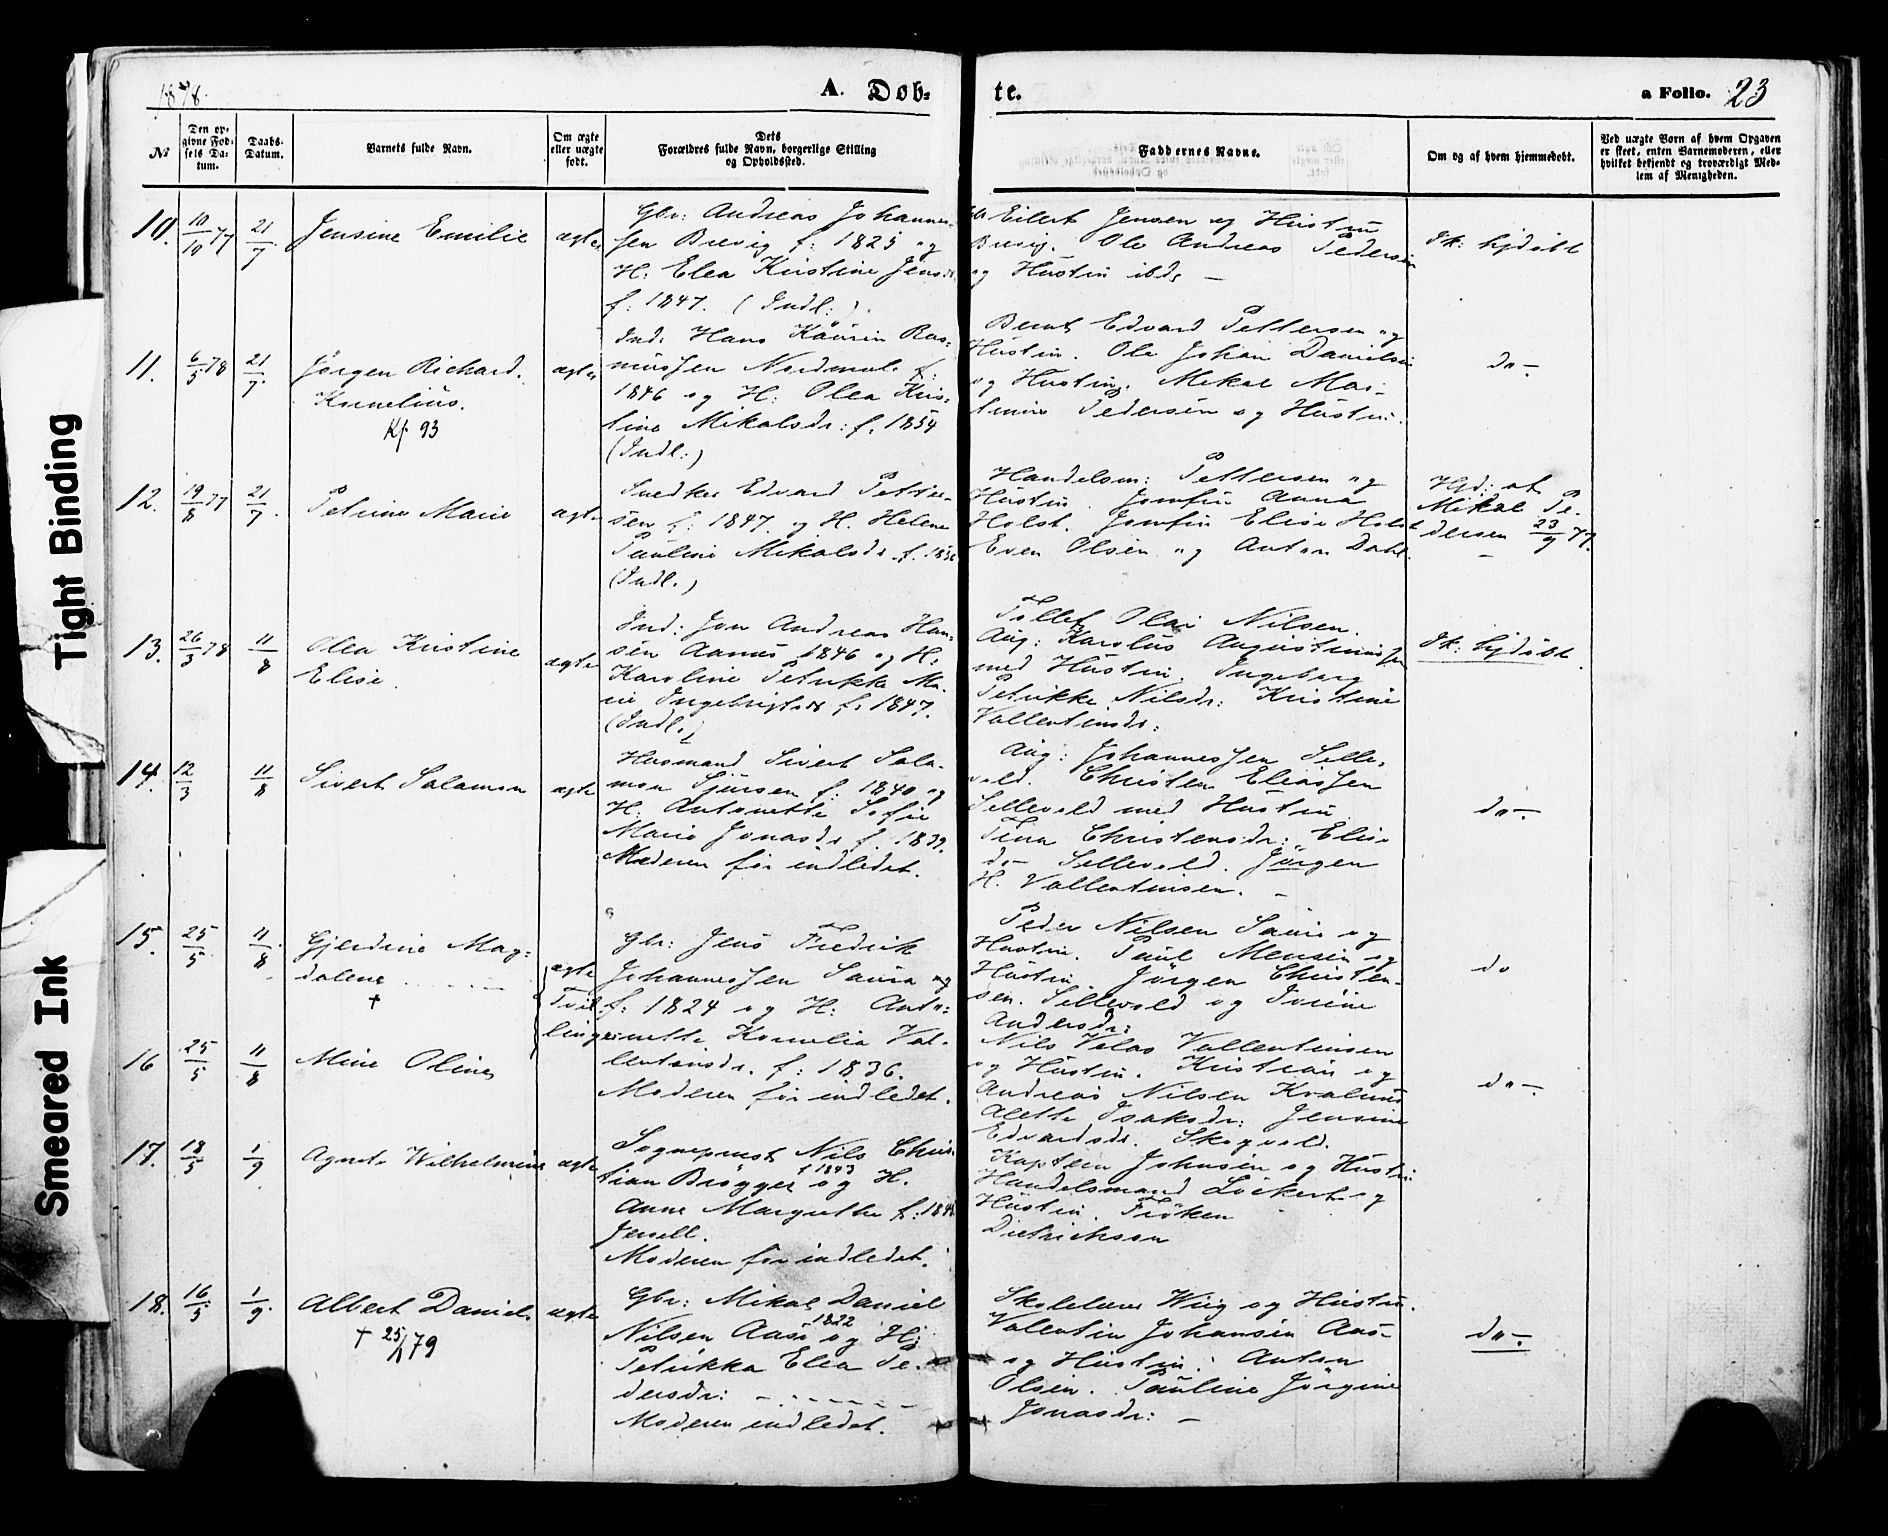 1878.
A. Døb-
te.
a Folio. 23
No
Den op-
givne Fød-
sels Da-
tum.
Daabs-
Datum.
Barnets fulde Navn.
Om ægte
eller uægte
født.
Dets
Forældres fulde Navn, borgerlige Stilling
og Opholdssted.
Faddernes Navne.
Om og af hvem hjemmedøbt.
Ved uægte Børn af hvem Opgaven
er skeet, enten Barnemoderen, eller
hvilket bekjendt og troværdigt Med-
lem af Menigheden.
10. 10/10 77 21/7 Jensine Emilie ægte
Gbr: Andreas Johannes-
sen Brevig f: 1825 og
H: Elea Kristine Jensdr
f: 1847. (Indl:).
Eilert Jensen og Hustru
Brevig. Ole Andreas Pedersen
og Hustru ibd. —
Ik: hjdøbt
11. 6/5 78 21/7. Jørgen Richard
Kornelius.
Kf 93
ægte
Ind: Hans Kaurin Ras-
mussen Nordmul. f:
1846 og H: Olea Kris-
tine Mikalsdr: f. 1854
(Indl:)
Bernt Edvard Pettersen og
Hustru. Ole Johan Danielsen
og Hustru. Mikal Mar-
tinus Pedersen og Hustru.
do —.
12. 19/8 77 21/7. Petrine Marie ægte
Snedker Edvard Petter-
sen f: 1847. og H. Helene
Pauline Mikalsdr. f.
(Indl.)
Handelsm: Pettersen og
Hustru. Jomfru Anna
Holst. Jomfru Elise Holst
Even Olsen og Anton Dahl.
Hjd: af
Mikal Pe-
dersen 23/9 77.
—
13. 26/3 78 11/8 Olea Kristine
Elise.
ægte
Ind: Jon Andreas Han-
sen Aanes 1846 og H:
Karoline Petrikke Ma-
rie Ingebrigtsdr f: 1847.
(Indl.)
Tollef Olai Nilsen.
Aug: Karolus Augustinussen
med Hustru. Ingeborg
Petrikke Nilsdr: Kristine
Vallentinsdr:
Ik: hjdøbt.
14. 12/3 11/8 Sivert Salamon ægte
Husmand Sivert Sala-
mon Sjursen f: 1840 og
H. Antonette Sofie
Marie Jonasdr f. 1839.
Moderen før indledet.
Aug: Johannessen Selle-
vold. Christen Eliassen
Sellevold med Hustru
Tina Christensdr: Elise
do — Sellevold. Jørgen
H. Vallentinsen. —
do —.
15. 25/5 11/8. Gjerdine Mag-
dalene
†
ægte
Tvil
linger
Gbr: Jens Fredrik
Johannessen Saura og
f: 1824 og H: Anto-
nette Kornelia Val-
lentinsdr. f: 1836.
Moderen før indledet.
Peder Nilsen Saura og
Hustru. Paul Mensen og
Hustru. Jørgen Christen-
sen. Sellevold og Ivrine
Andersdr:
do
16 25/5 11/8 Mine Oline
Nils Velas Vallentinsen
og Hustru. Kristian og
Andreas Nilsen Kvalnes
Alette Isaksdr: Jensine
Edvardsdr. Skogvold.
do —.
17. 18/5 1/9 Agnete Wilhelmine ægte
Sogneprest Nils Chris-
f 1843
tian Brøgger og H.
Anne Margrethe f: 184
Jersell.
Moderen før indledet.
Kaptein Johnsen og Hustru
Handelsmand Lockert og
Hustru. Frøken
Dietrichson
18. 16/5 1/9. Albert Daniel.
† 25/1 79
ægte
Gbr: Mikal Daniel
1822
Nilsen Aase og H:
Petrikka Elea Pe-
dersdr: —
Moderen indledet.
Skolelærer Wiig og Hustru.
Valentin Johansen Aas-
og Hustru. Anton
Olsen. Pauline Jørgine
Jonasdr: —
do —.
Tight Binding
Smeared Ink